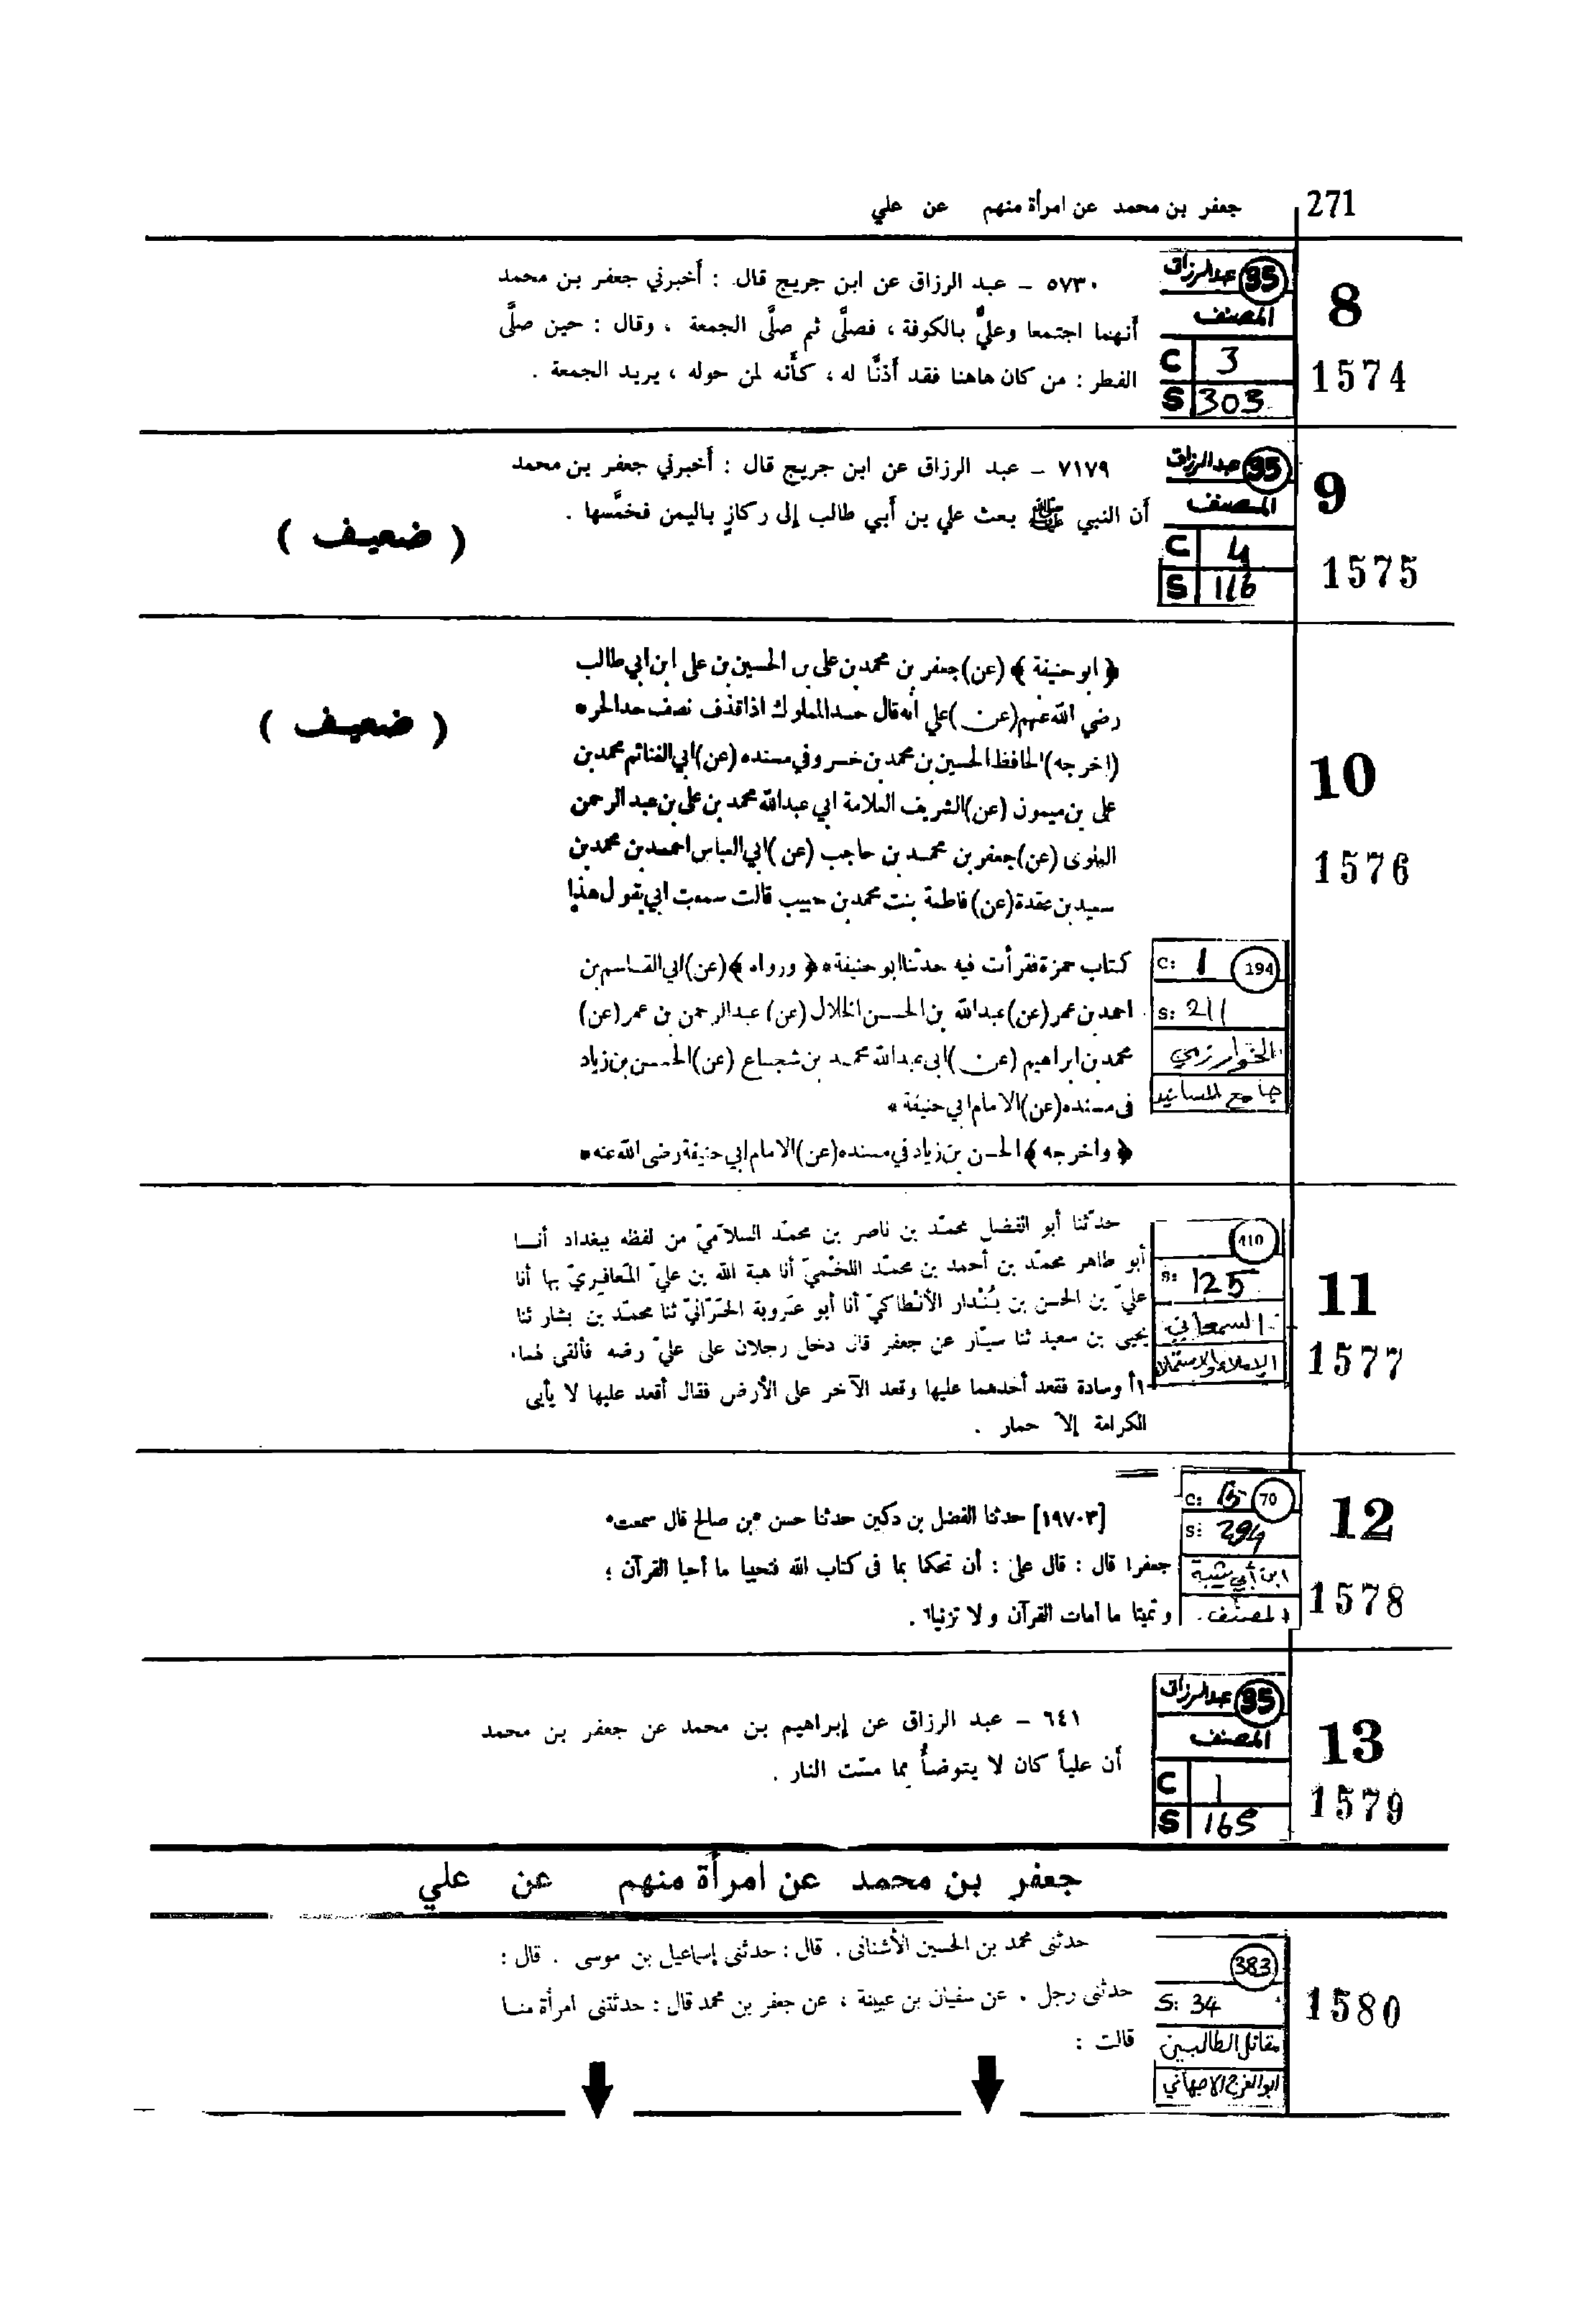 271 جعفر بن محمد عن امرأة منهم عن علي
8
1574
95 عبدالرزاق
المصنف
C 3
S 303
٥٧٣٠ – عبد الرزاق عن ابن جريج قال : أخبرني جعفر بن محمد
أنهما اجتمعا وعليٌّ بالكوفة ، فصلَّى ثم صلَّى الجمعة ، وقال : حين صلَّى
الفطر : من كان هاهنا فقد أذنَّا له ، كأنه لمن حوله ، يريد الجمعة .
9
1575
95 عبدالرزاق
المصنف
C 4
S 116
٧١٧٩ – عبد الرزاق عن ابن جريج قال : أخبرني جعفر بن محمد
أن النبي ﷺ بعث علي بن أبي طالب إلى ركازٍ باليمن فخمَّسها .
( ضعيف )
10
1576
﴿ ابو حنيفة ﴾ (عن) جعفر بن محمد بن على بن الحسين بن على ابن ابي طالب
رضي الله عنهم (عن) علي انه قال حد المملوك اذا قذف نصف حد الحر *
(اخرجه) الحافظ الحسين بن محمد بن خسرو في مسنده (عن) ابي الغنائم محمد بن
على بن ميمون (عن) الشريف العلامة ابي عبدالله محمد بن على بن عبد الرحمن
العلوى (عن) جعفر بن محمد بن حاجب (عن) ابي العباس احمد بن محمد بن
سعيد بن عقدة (عن) فاطمة بنت محمد بن حبيب قالت سمعت ابي يقول هذا
( ضعيف )
C: 1 194
S: 211
الخوارزمي
جامع المسانيد
كتاب حمزة فقرأت فيه حدثنا ابو حنيفة * ﴿ ورواه ﴾ (عن) ابي القاسم بن
احمد بن عمر (عن) عبدالله بن الحسن الخلال (عن) عبدالرحمن بن عمر (عن)
محمد بن ابراهيم (عن) ابى عبدالله محمد بن شجاع (عن) الحسن بن زياد
فى مسنده (عن) الامام ابي حنيفة *
﴿ واخرجه ﴾ الحسن بن زياد في مسنده (عن) الامام ابي حنيفة رضى الله عنه *
11
1577
410
S: 125
السمعاني
الإملاء والاستملاء
حدّثنا أبو الفضل محمّد بن ناصر بن محمّد السلاّميّ من لفظه ببغداد أنـــا
أبو طاهر محمّد بن أحمد بن محمّد اللخْميّ أنا هبة الله بن عليّ المَعافِريّ بها أنا
عليّ بن الحسن بن بُنْدار الأنْطاكيّ أنا أبو عَروبة الحَرّانيّ ثنا محمّد بن بشار ثنا
يحيى بن سعيد ثنا سيّار عن جعفر قال دخل رجلان على عليّ رضه فألقى لهما
وسادة فقعد أحدهما عليها وقعد الآخر على الأرض فقال أقعد عليها لا يأبى
الكرامة إلاّ حمار .
12
1578
C: 15 70
S: 294
ابن أبي شيبة
المصنف
[١٩٧٠٣] حدثنا الفضل بن دكين حدثنا حسن بن صالح قال سمعت
جعفرا قال : قال على : أن تحكما بما فى كتاب الله فتحييا ما أحيا القرآن ؛
و تميتا ما أمات القرآن و لا تزنيا .
13
1579
95 عبدالرزاق
المصنف
C 1
S 165
٦٤١ – عبد الرزاق عن إبراهيم بن محمد عن جعفر بن محمد
أن علياً كان لا يتوضأُ مما مسّت النار .
جعفر بن محمد عن امرأة منهم عن علي
1580
383
S: 34
مقاتل الطالبيين
ابوالفرج الاصبهاني
حدثنى محمد بن الحسين الأشنانى . قال : حدثنى إسماعيل بن موسى . قال :
حدثنى رجل . عن سفيان بن عيينة ، عن جعفر بن محمد قال : حدثتنى امرأة منـا
قالت :